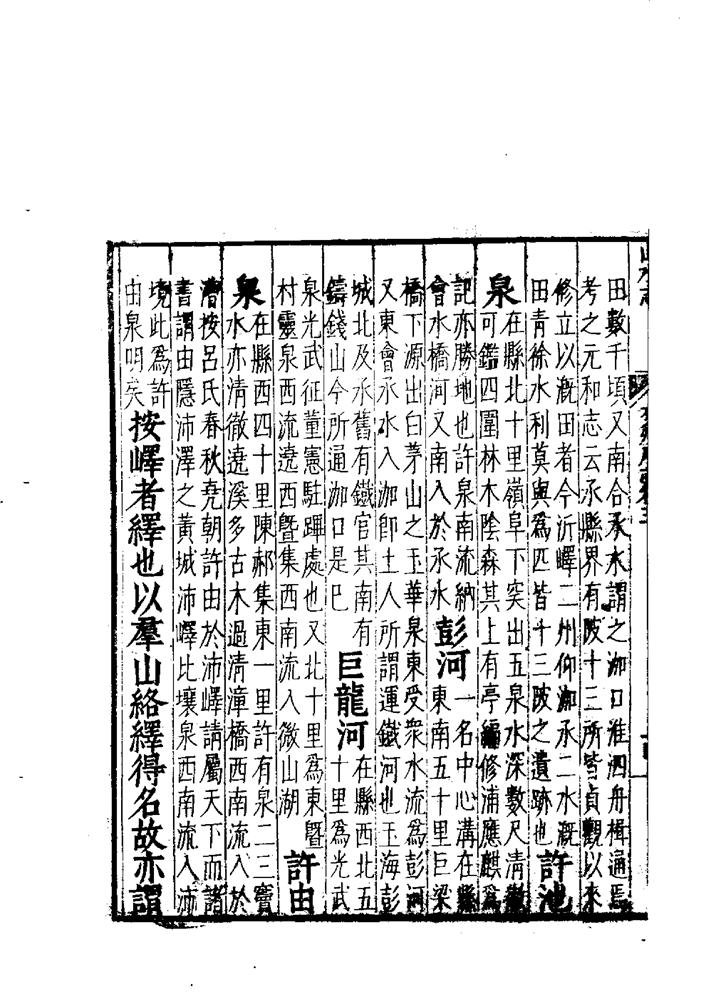 田數千頃又南合承水謂之泇口淮泗舟楫通焉
考之元和志云承縣界有陂十三所皆貞觀以來
修立以溉田者今沂嶧二州仰泇承二水溉
田青徐水利莫與爲匹皆十三陂之遺跡也
許池
泉
在縣北十里嶺阜下突出五泉水深數尺清澈
可鑑四圍林木陰森其上有亭編修浦應麒爲
記亦勝地也許泉南流納
會水橋河又南入於承水
彭河
一名中心溝在縣
東南五十里巨梁
橋下源出白茅山之玉華泉東受衆水流爲彭河
又東會承水入泇卽土人所謂運鐵河也玉海彭
城北及承舊有鐵官其南有
鑄錢山今所通泇口是已
巨龍河
在縣西北五
十里爲光武
泉光武征董憲駐蹕處也又北十里爲東曁
村靈泉西流遶西曁集西南流入微山湖
許由
泉
在縣西四十里陳郝集東一里許有泉二三竇
水亦清徹遶溪多古木過清漳橋西南流入於
漕按呂氏春秋堯朝許由於沛嶧請屬天下而諸
書謂由隱沛澤之黃城沛嶧比壤泉西南流入沛
境此爲許
由泉明矣
按嶧者繹也以羣山絡繹得名故亦謂